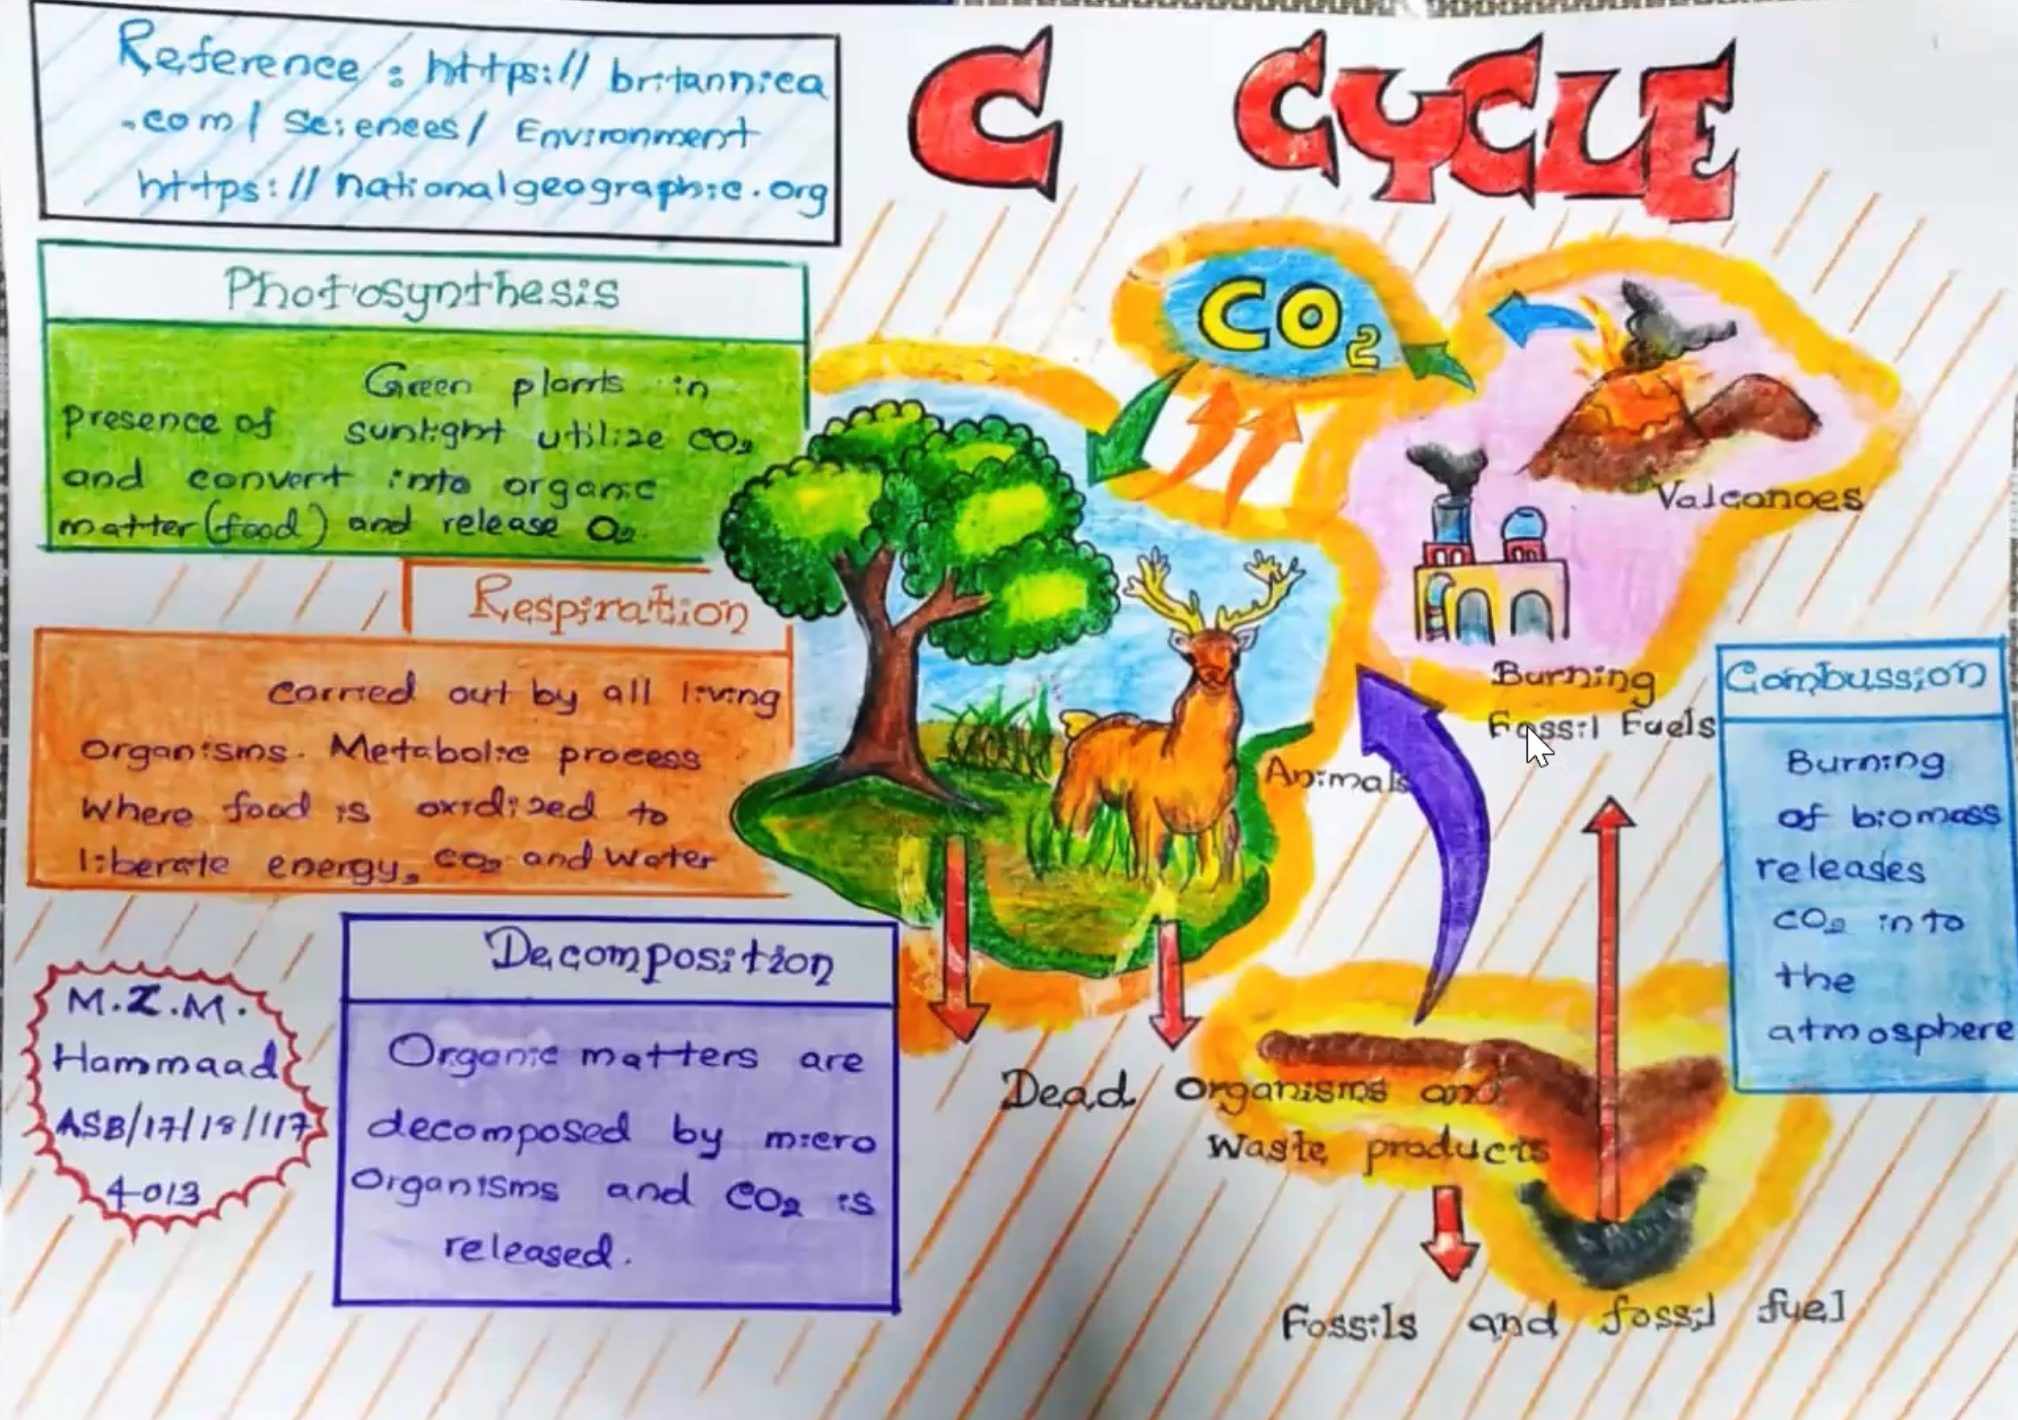 Reference : https:// britannica
.com/ Sciences/ Environment
https:// nationalgeographic.org
C CYCLE
Photosynthesis
Green plants in
presence of sunlight utilize CO2
and convert into organic
matter (food) and release O2.
Respiration
Carried out by all living
Organisms. Metabolic process
Where food is oxidized to
liberate energy, CO2 and Water
M.Z.M.
Hammaad
ASB/17/18/117
4013
Decomposition
Organic matters are
decomposed by micro
Organisms and CO2 is
released.
CO2
Valcanoes
Burning
Fossil Fuels
Animals
Combussion
Burning
of biomass
releases
CO2 into
the
atmosphere
Dead Organisms and
Waste products
Fossils and fossil fuel